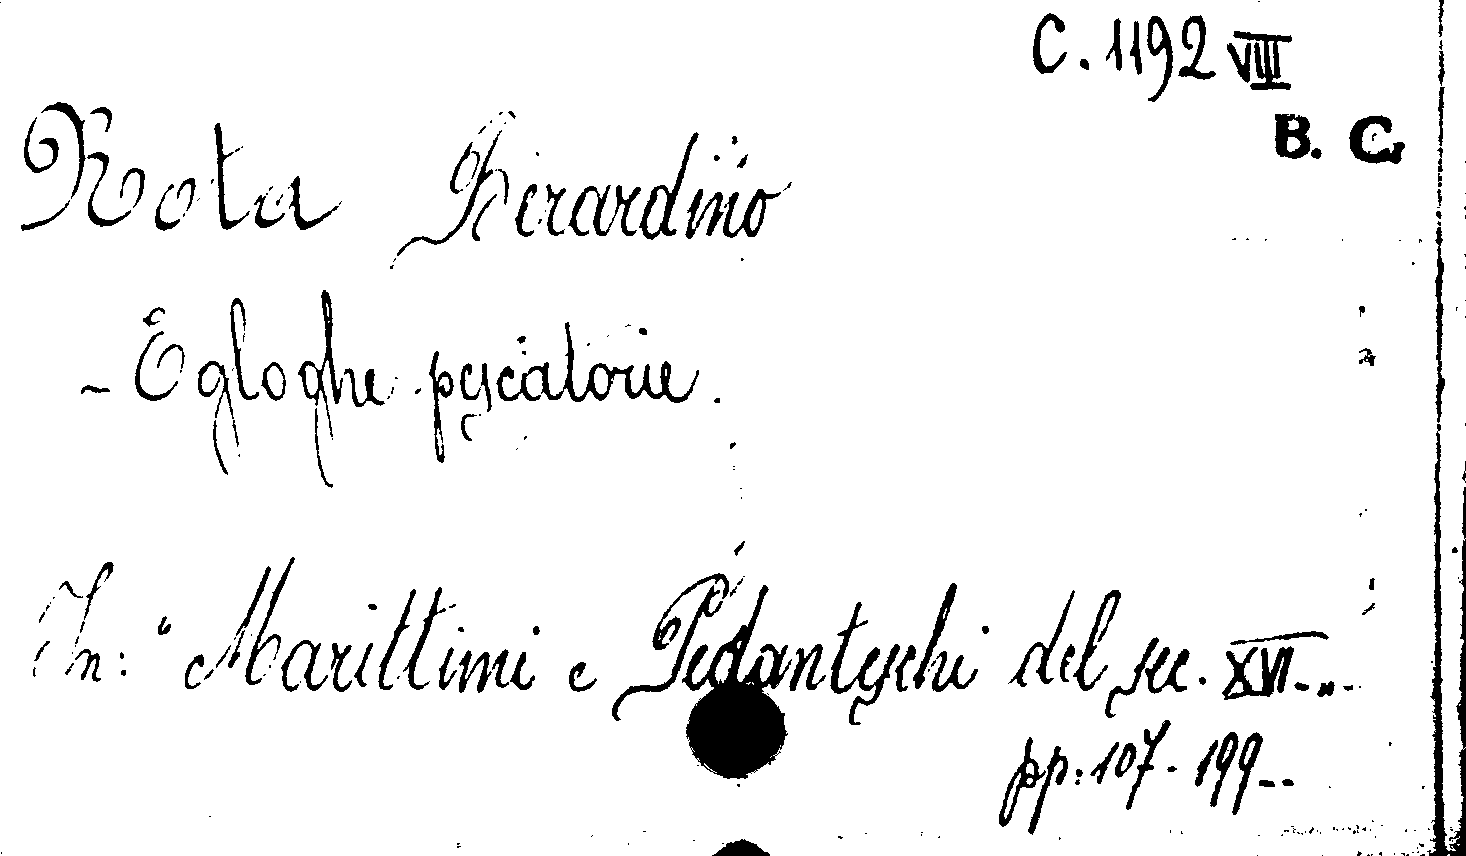 C. 1192 VIII
B. C.
Rota Berardino
- Egloghe pescatorie.
In: "Marittimi e Pedanteschi del sec. XVI-"-
pp: 107-199--